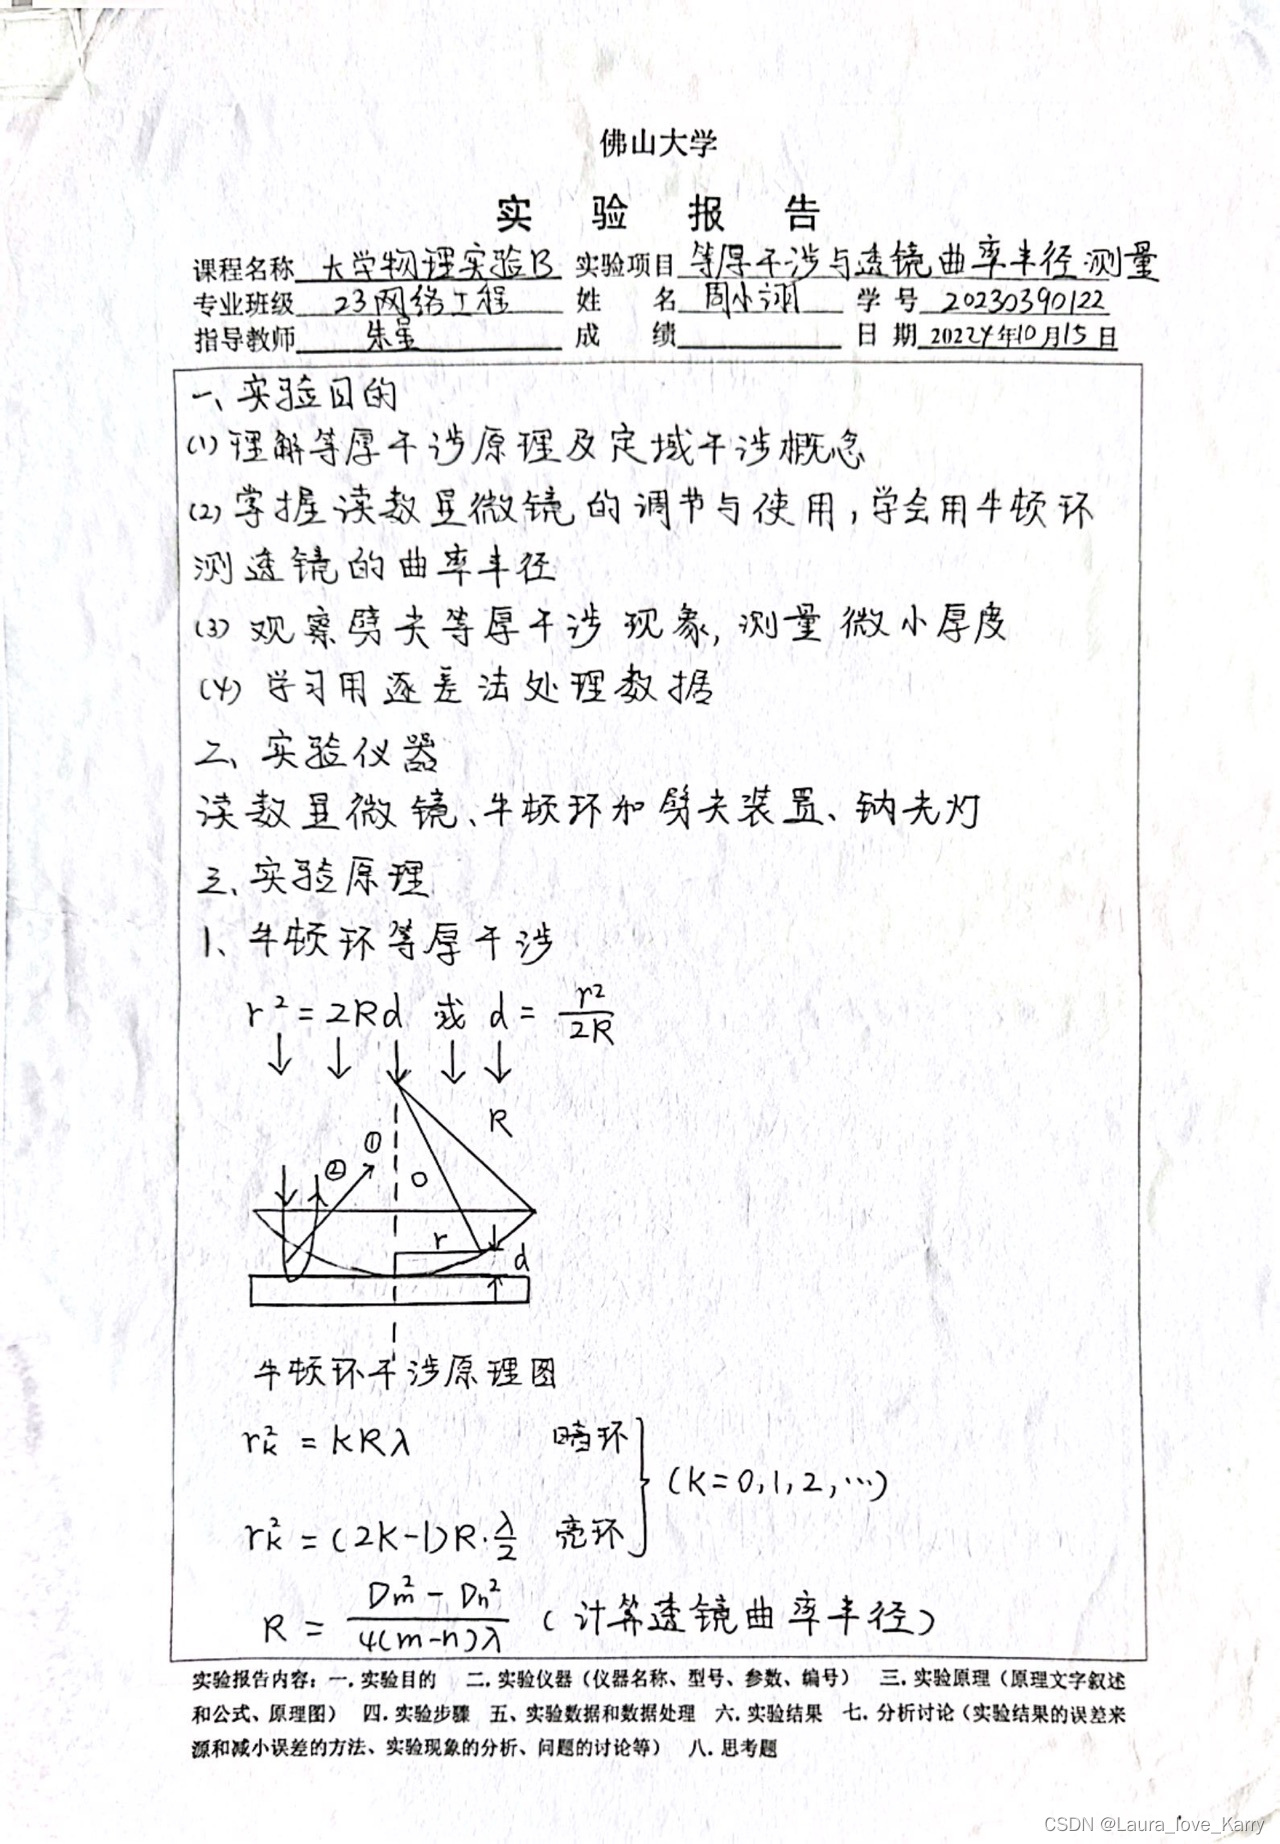 佛山大学
实 验 报 告
课程名称 大学物理实验B 实验项目 等厚干涉与透镜曲率半径测量
专业班级 23网络工程 姓 名 周小翊 学 号 20230390122
指导教师 朱星 成 绩 日 期 20224年10月15日
一、实验目的
(1) 理解等厚干涉原理及定域干涉概念
(2) 掌握读数显微镜的调节与使用，学会用牛顿环
测透镜的曲率半径
(3) 观察劈尖等厚干涉现象，测量微小厚度
(4) 学习用逐差法处理数据
二、实验仪器
读数显微镜、牛顿环和劈尖装置、钠光灯
三、实验原理
1、牛顿环等厚干涉
r² = 2Rd 或 d = r²/2R
R
①
②
O
r
d
牛顿环干涉原理图
r_k² = kRλ 暗环
(K=0,1,2,…)
r_k² = (2K-1)R·λ/2 亮环
R = (Dm² - Dn²)/4(m-n)λ (计算透镜曲率半径)
实验报告内容：一.实验目的 二.实验仪器（仪器名称、型号、参数、编号） 三.实验原理（原理文字叙述
和公式、原理图） 四.实验步骤 五、实验数据和数据处理 六.实验结果 七.分析讨论（实验结果的误差来
源和减小误差的方法、实验现象的分析、问题的讨论等） 八.思考题
CSDN @Laura_love_Karry